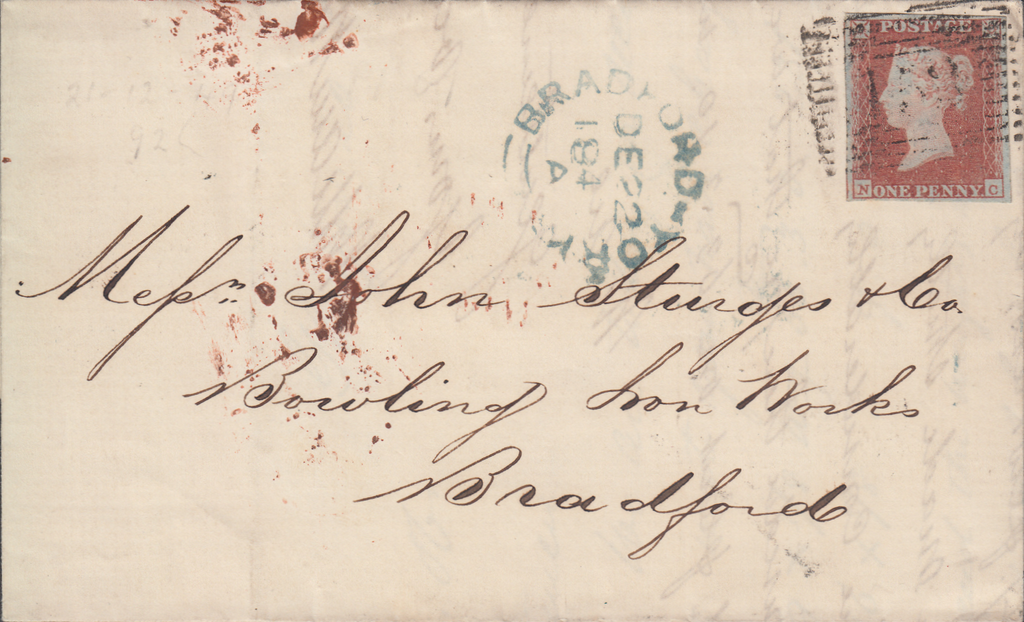 POSTAGE
N ONE PENNY C
BRADFORD-YORK
DE 22
184
A
21-12-
92
Messrs John Sturges & Co.
Bowling Iron Works
Bradford